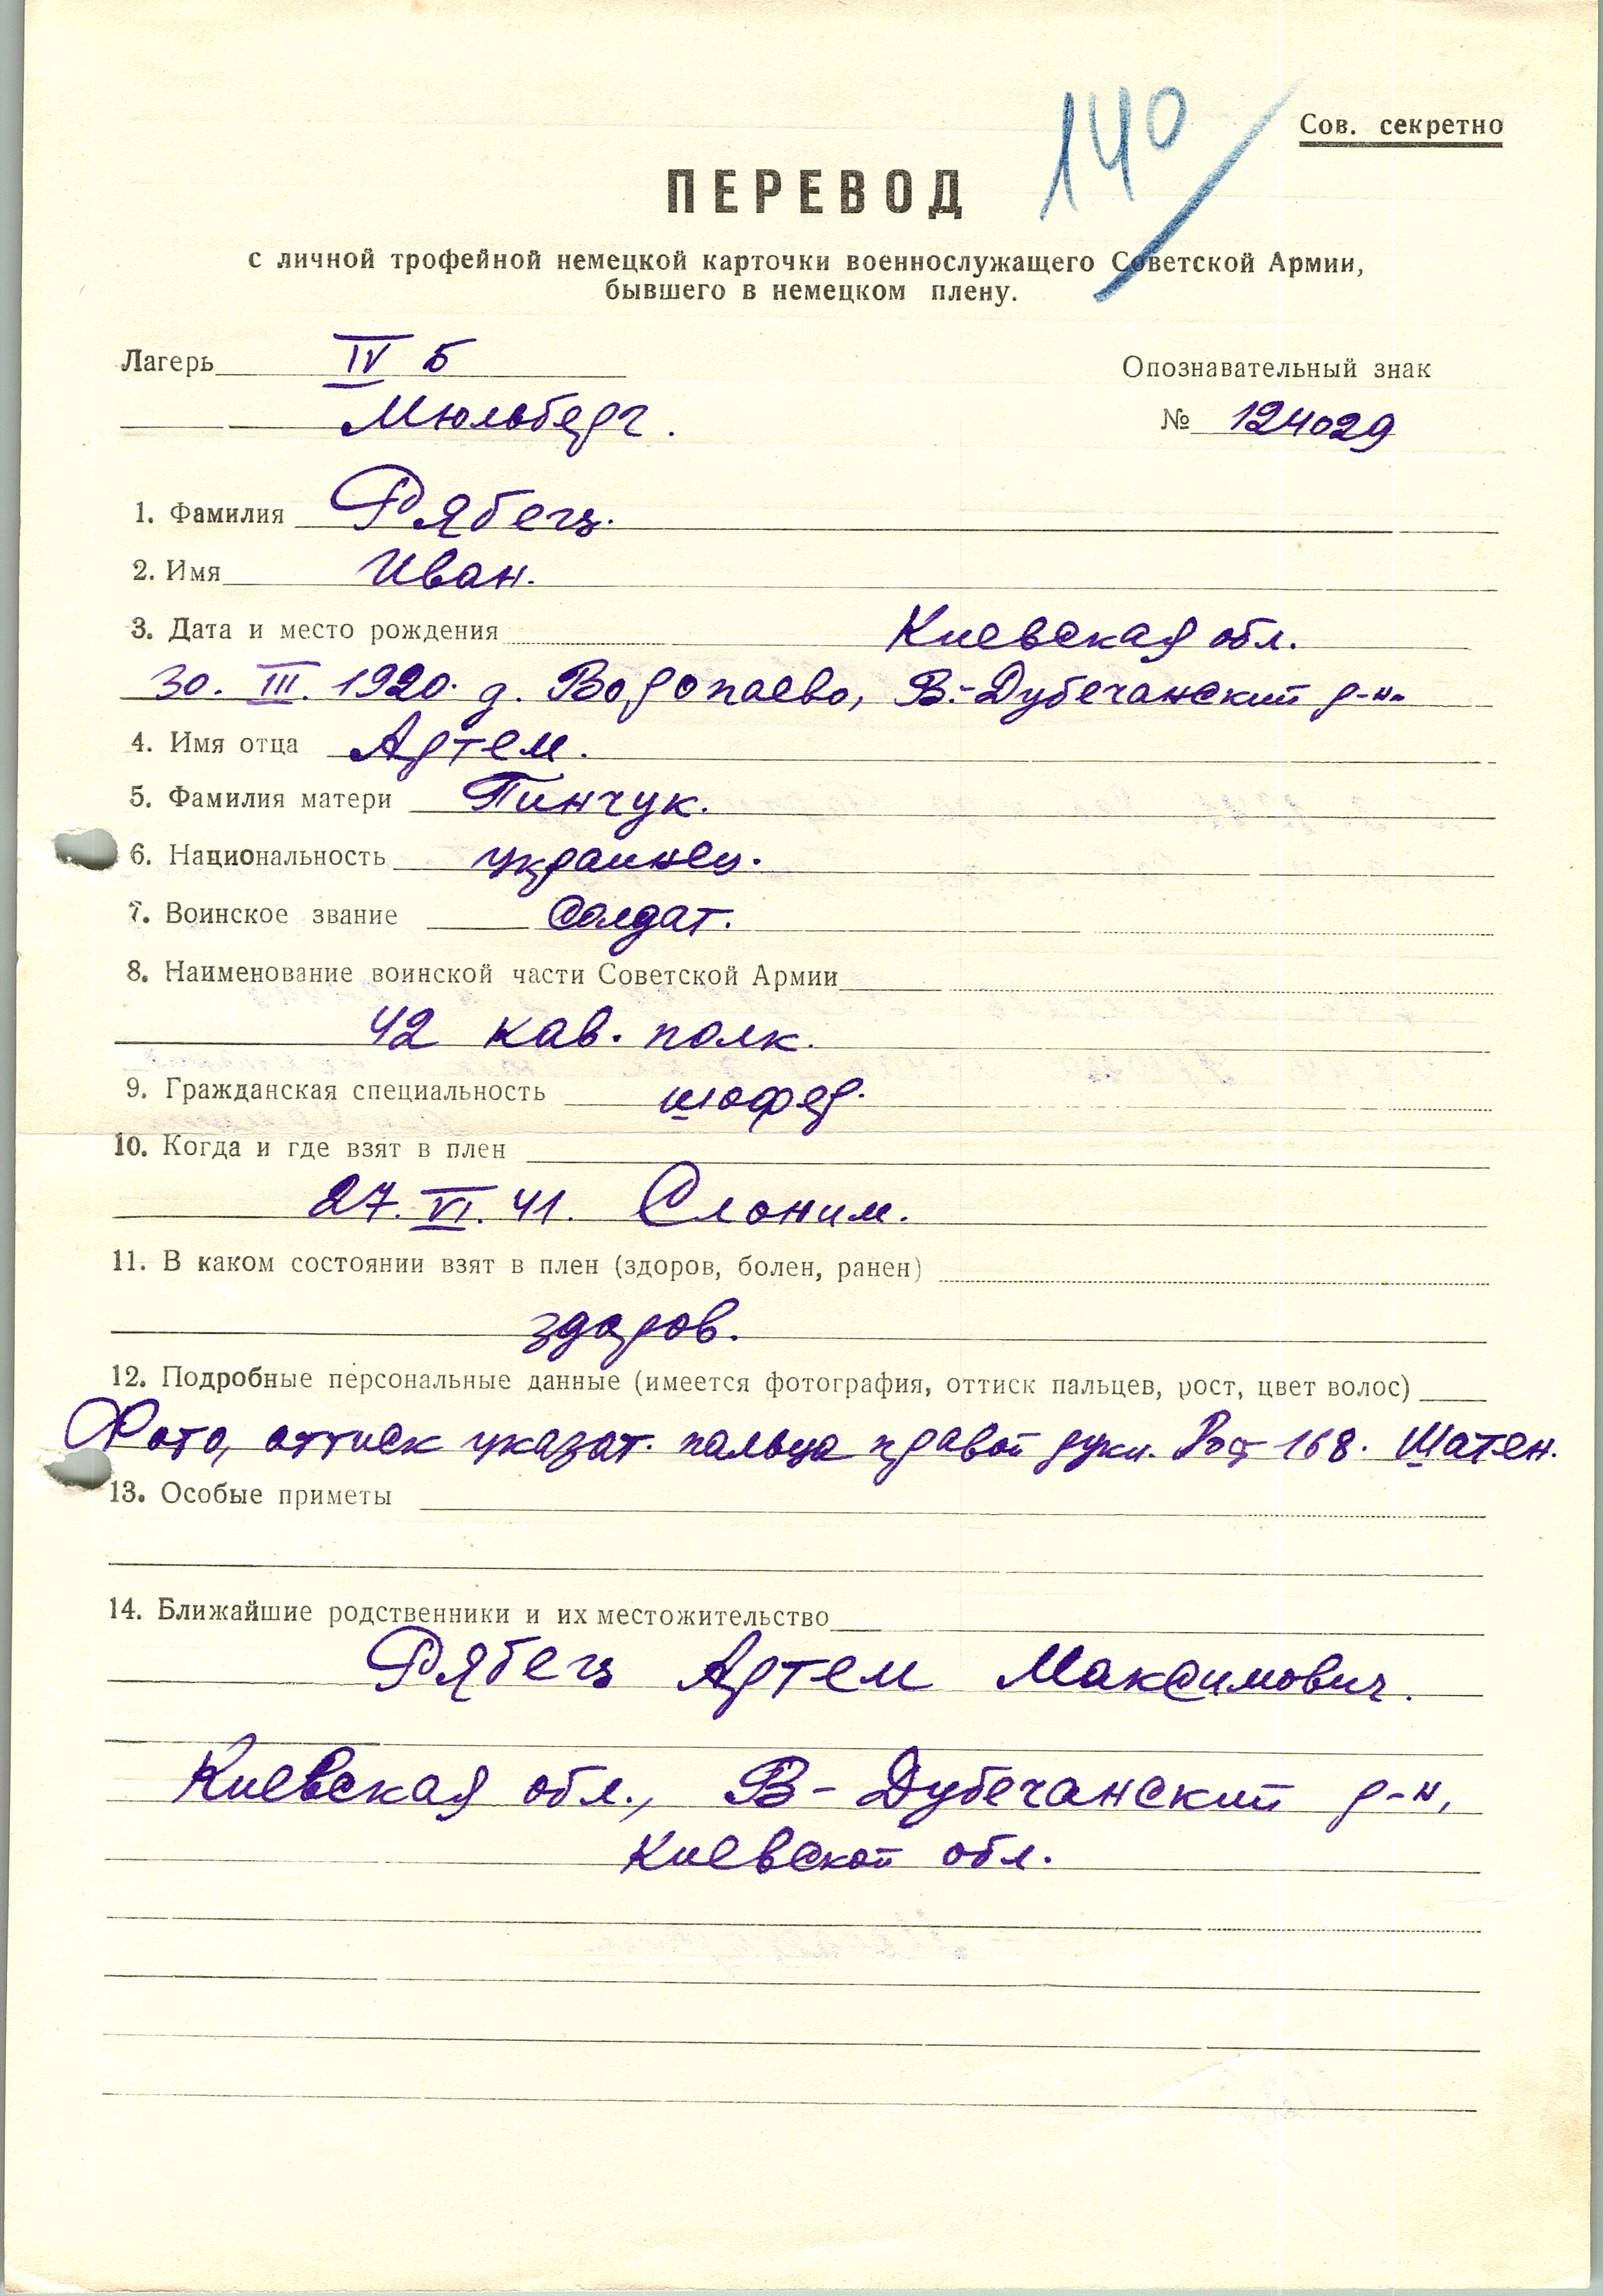 140
Сов. секретно
ПЕРЕВОД
с личной трофейной немецкой карточки военнослужащего Советской Армии,
бывшего в немецком плену.
Лагерь IV Б
Опознавательный знак
Мюльберг.
№ 124029
1. Фамилия Рябец.
2. Имя Иван.
3. Дата и место рождения Киевская обл.
30. III. 1920. д. Водопаево, В.-Дубечанский р-н.
4. Имя отца Артем.
5. Фамилия матери Пинчук.
6. Национальность украинец.
7. Воинское звание Солдат.
8. Наименование воинской части Советской Армии
42 кав. полк.
9. Гражданская специальность шофер.
10. Когда и где взят в плен
27. VI. 41. Слоним.
11. В каком состоянии взят в плен (здоров, болен, ранен)
здоров.
12. Подробные персональные данные (имеется фотография, оттиск пальцев, рост, цвет волос)
Фото, оттиск указат. пальца правой руки. Рост 168. Шатен.
13. Особые приметы
14. Ближайшие родственники и их местожительство
Рябец Артем Максимович.
Киевская обл., В-Дубечанский р-н,
Киевской обл.